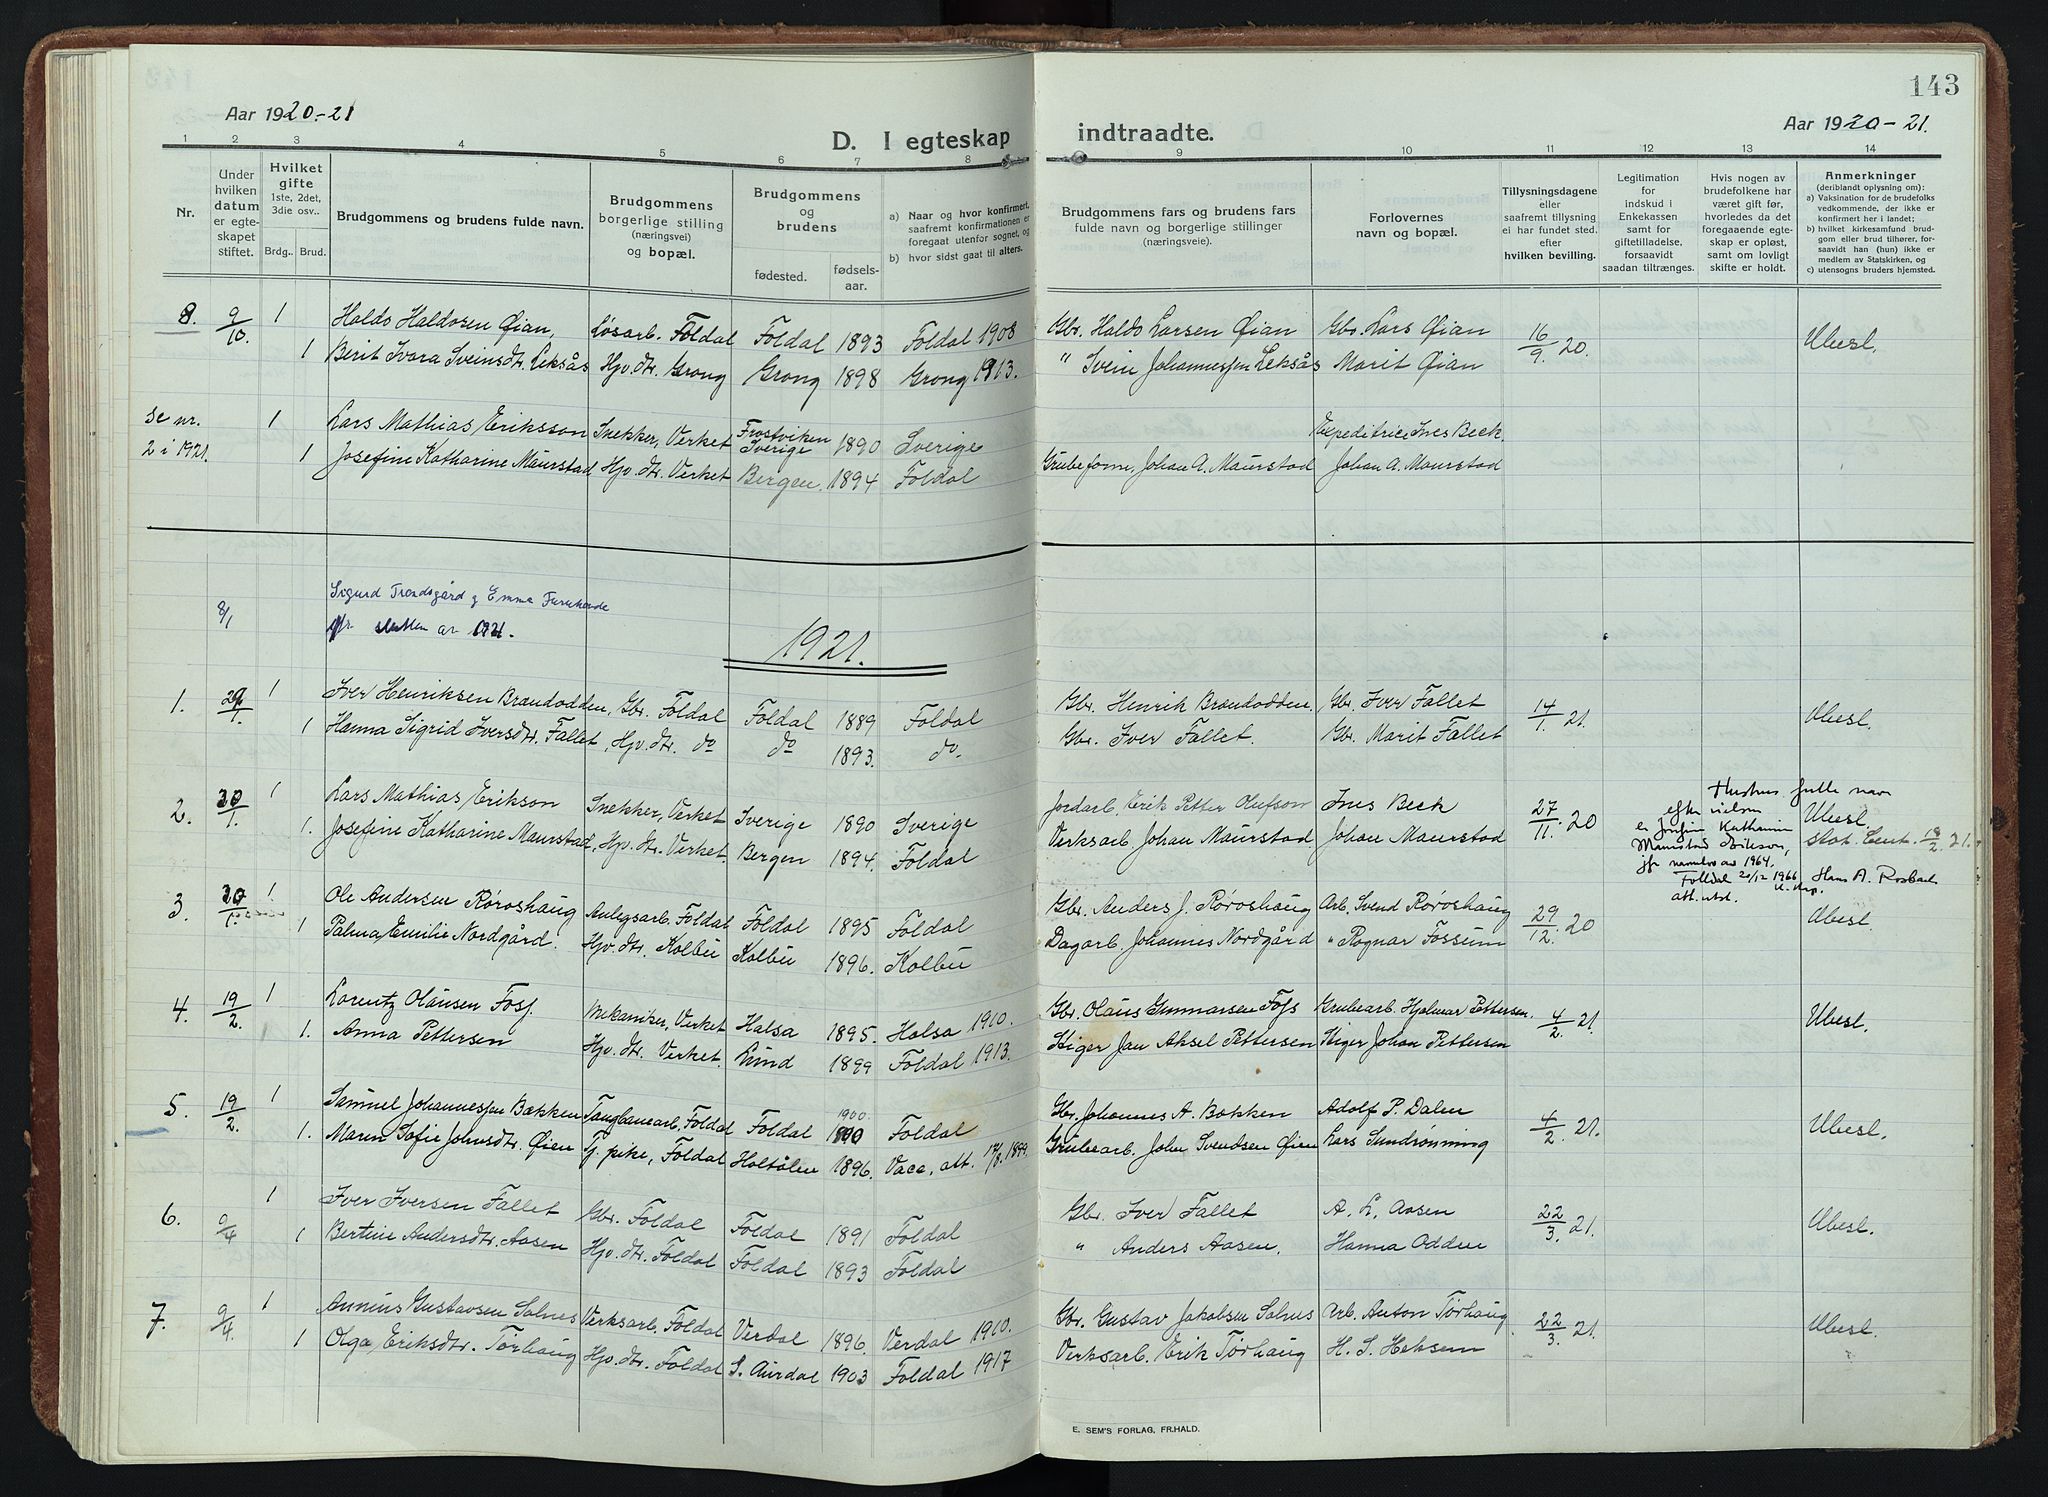 143
Aar 1920-21
D. I egteskap indtraadte.
Aar 1920-21.
1 2 3 4 5 6 7 8 9 10 11 12 13 14
Nr.
Under hvilken datum er egteskapet stiftet.
Hvilket gifte 1ste, 2det, 3die osv..
Brdg.. Brud.
Brudgommens og brudens fulde navn.
Brudgommens borgerlige stilling (næringsvei) og bopæl.
Brudgommens og brudens
fødested. fødselsaar.
a) Naar og hvor konfirmert, saafremt konfirmationen er foregaat utenfor sognet, og
b) hvor sidst gaat til alters.
Brudgommens fars og brudens fars fulde navn og borgerlige stillinger (næringsveie).
Forlovernes navn og bopæl.
Tillysningsdagene eller saafremt tillysning ei har fundet sted, efter hvilken bevilling.
Legitimation for indskud i Enkekassen samt for giftetilladelse, forsaavidt saadan tiltrænges.
Hvis nogen av brudefolkene har været gift før, hvorledes da det foregaaende egteskap er opløst, samt om lovligt skifte er holdt.
Anmerkninger (deriblandt oplysning om):
a) Vaksination for de brudefolks vedkommende, der ikke er konfirmert her i landet;
b) hvilket kirkesamfund brudgom eller brud tilhører, forsaavidt han (hun) ikke er medlem av Statskirken, og
c) utensogns bruders hjemsted.
8. 9/10 1 Haldo Haldorsen Øian, Løsarb. Foldal Foldal 1893 Foldal 1908 Gbr. Haldo Larsen Øian Gbr. Lars Øian 16/9 20. Ubesl.
1 Berit Ivara Sveinsdtr. Leksås Hjv. dtr. Grong Grong 1898 Grong 1913. " Svein Johannessen Leksås Marit Øian
se nr. 2 i 1921. 1 Lars Mathias Eriksson Snekker, Verket Frostviken Sverige 1890 Sverige Expeditrice Ines Beck.
1 Josefine Katharine Maurstad Hjv. dtr. Verket Bergen. 1894 Foldal Grubeform. Johan A. Maurstad Johan A. Maurstad
8/1 Sigurd Trondsgård g Emma
jfr slutten av 1921.
1921.
1. 29/1. 1 Iver Henriksen Brandodden, Gbr. Foldal Foldal 1889 Foldal Gbr. Henrik Brandodden. Gbr. Iver Fallet 14/1. 21. Ubesl.
1 Hanna Sigrid Iversdtr. Fallet, Hjv. dtr. do do 1893. do. Gbr. Iver Fallet. Gbr. Marit Fallet
2. 30/1. 1 Lars Mathias Erikson Snekker, Verket Sverige 1890 Sverige Jordarb. Erik Petter Olufson Ines Beck 27/11. 20 Ubesl.
1. Josefine Katharine Maurstad, Hjv. dtr. Verket. Bergen 1894. Foldal Verksarb. Johan Maurstad Johan Maurstad Stat. Cent. 18/2 21.
Hustrus fulle navn
efter vielsen
er Josefine Katharine
Maurstad Erikson,
jfr navnelov av 1964.
Folldal 20/12 1966 Hans A. Rosbach
3. 30/1. 1 Ole Andersen Røroshaug Anlegsarb. Foldal Foldal 1895 Foldal Gbr. Anders J. Røroshaug Arb. Svend Røroshaug 29/12. 20 Ubesl.
1 Palma Emilie Nordgård. Hjv. dtr. Kolbu Kolbu 1896. Kolbu Dagarb. Johannes Nordgård " Ragnar Fossum
4. 19/2. 1 Lorentz Olausen Foss. Mekaniker, Verket Halsa 1895. Halsa 1910. Gbr. Olaus Gunnarsen Foss Grubearb. Hjalmar Pettersen. 4/2. 21. Ubesl.
1. Anna Pettersen Hjv. dtr. Verket. Lund 1899 Foldal 1913. Stiger Jan Aksel Pettersen Stiger Johan Pettersen
5. 19/2. 1 Samuel Johannessen Bækken Taugbanearb. Foldal Foldal 1900. Foldal Gbr. Johannes A. Bækken Adolf P. Dalen 4/2. 21. Ubesl.
1. Maren Sofie Johnsdtr. Øien Tj. pike, Foldal Holtålen 1896. Vacc. att. Grubearb. John Svendsen Øien Lars Sundrønning
6. 9/4 1 Iver Iversen Fallet Gbr. Foldal Foldal 1891 Foldal Gbr. Iver Fallet A. L. Aasen 22/3. 21. Ubesl.
1 Bertine Andersdtr. Aasen Hjv. dtr. Foldal Foldal 1893 Foldal " Anders Aasen. Hanna Odden
7. 9/4 1 Annius Gustavsen Salnes Verksarb. Foldal Verdal 1896. Verdal 1910. Gbr. Gustav Jakobsen Salnes Arb. Anton Tørhaug 22/3. 21. Ubesl.
1 Olga Eriksdtr. Tørhaug Hjv. dtr. Foldal S. Aurdal 1903 Foldal 1917 Verksarb. Erik Tørhaug H. S. Heksem
E. SEM'S FORLAG, FR.HALD.